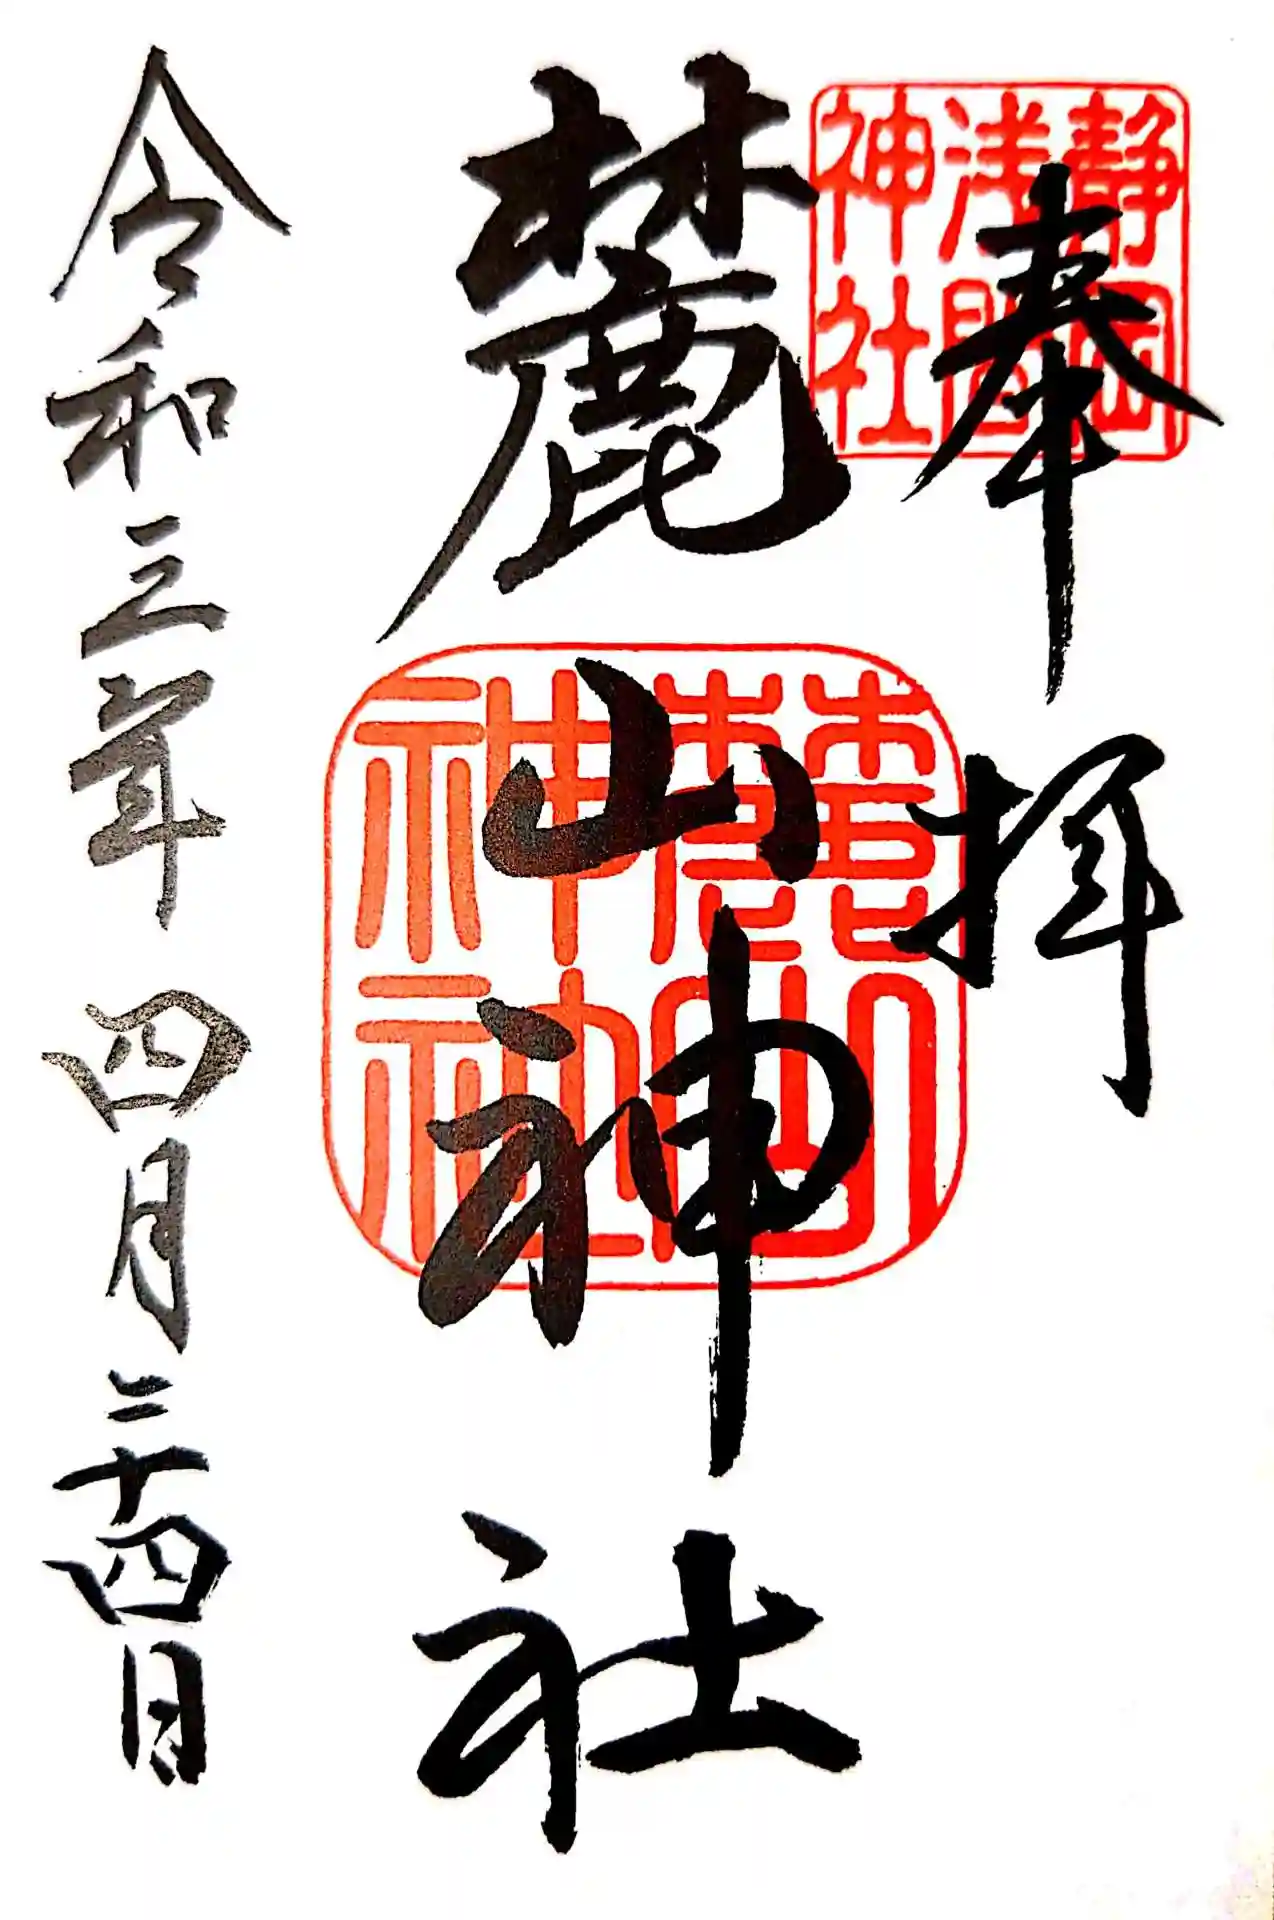 奉拝
静岡浅間神社
麓山神社
麓山神社
令和三年四月二十四日